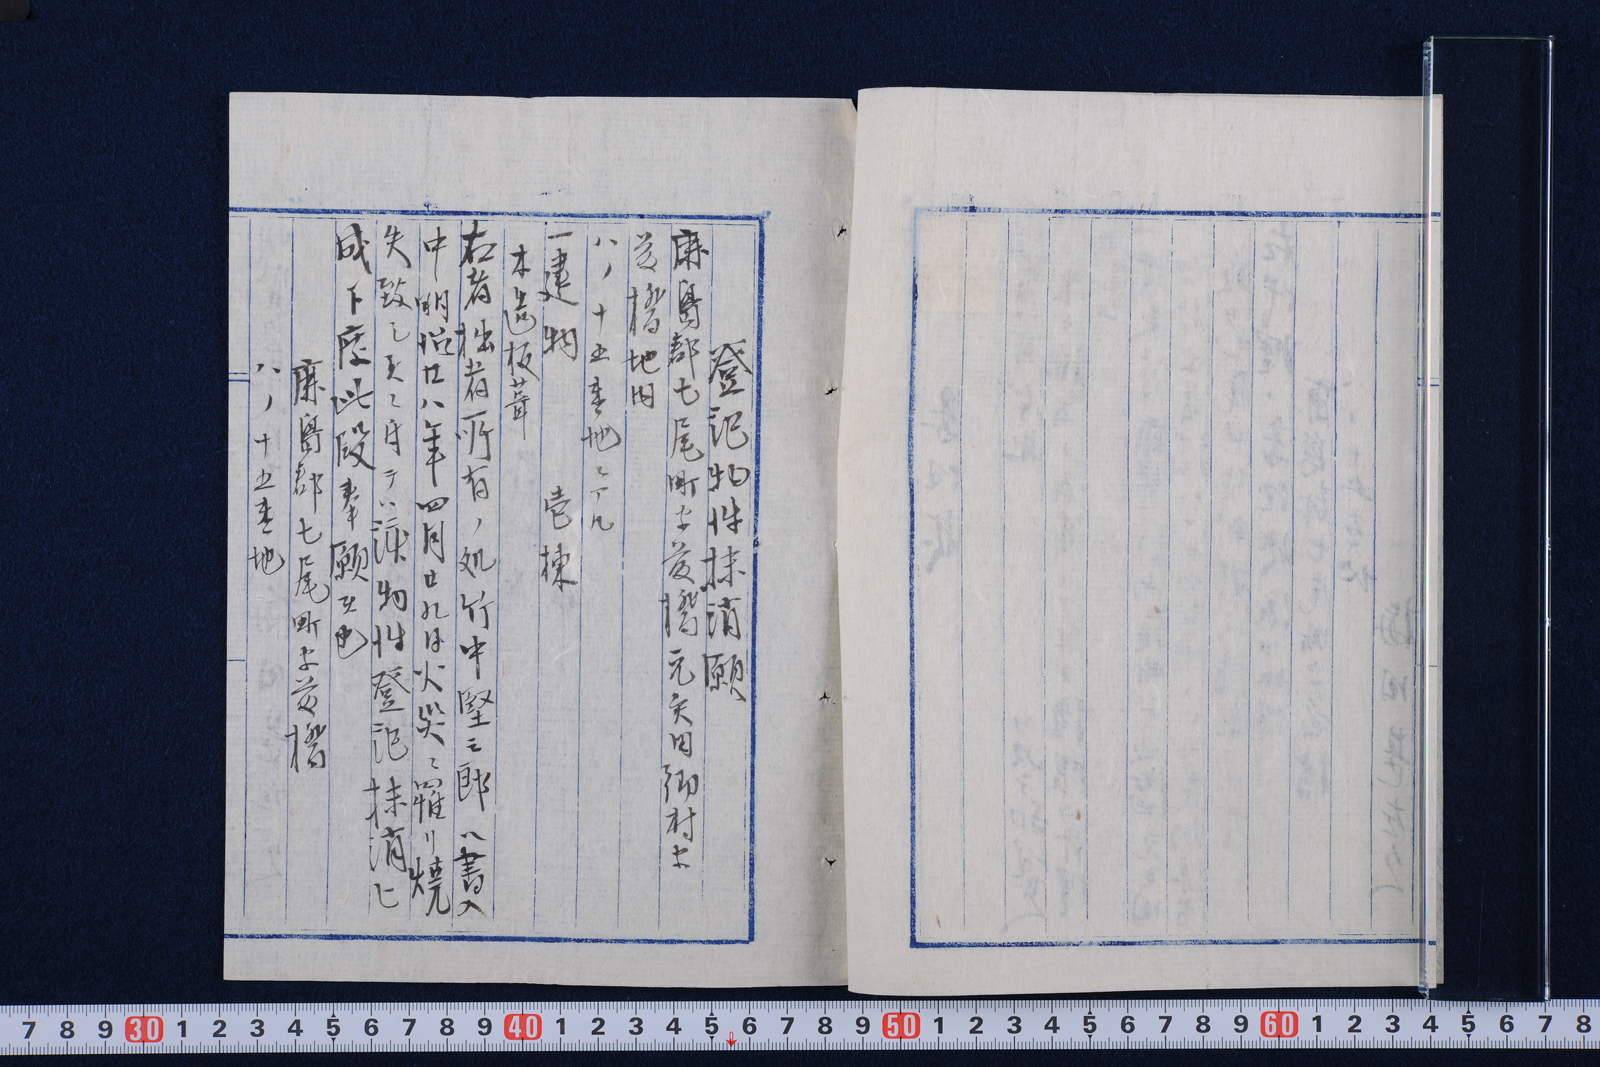 登記物件抹消願
鹿島郡七尾町字藤橋元矢田郷村字
藤橋地内
ハノ十五番地ニアル
一建物 壱棟
木造板葺
右者拙者所有ノ処竹中堅三郎ヘ書入
中明治廿八年四月廿九日火災ニ罹リ焼
失致シ候ニ付テハ該物件登記抹消被
成下度此段奉願候也
鹿島郡七尾町字藤橋
ハノ十五番地
7 8 9 30 1 2 3 4 5 6 7 8 9 40 1 2 3 4 5 6 7 8 9 50 1 2 3 4 5 6 7 8 9 60 1 2 3 4 5 6 7 8